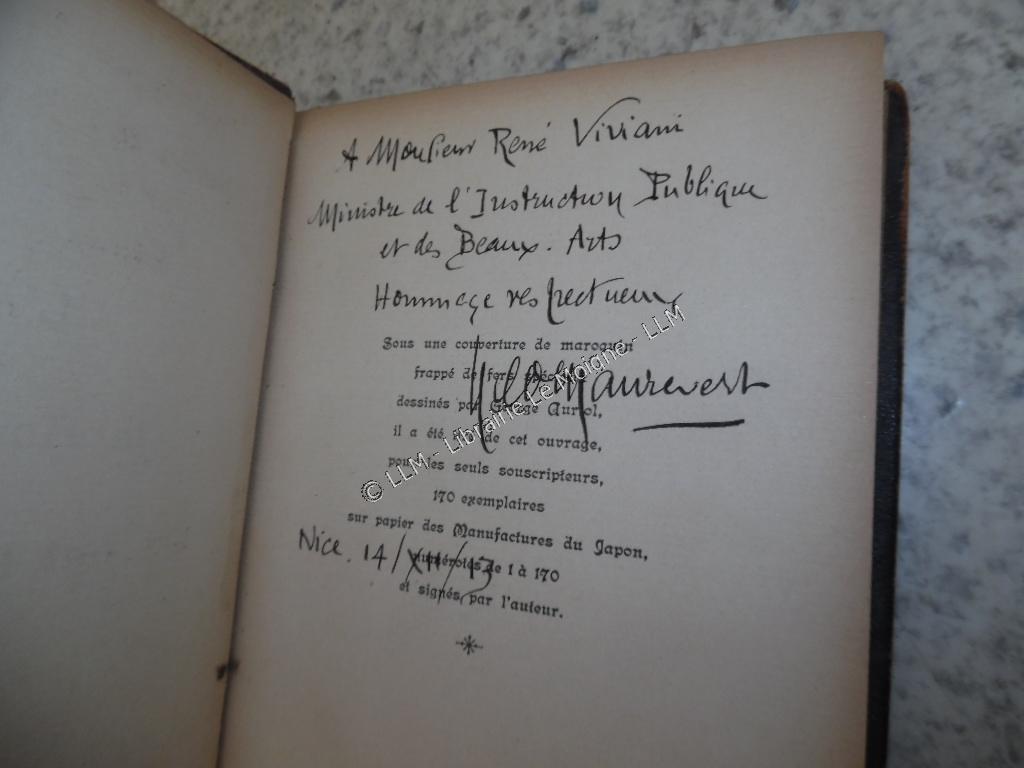 A Monsieur René Viviani
Ministre de l'Instruction Publique
et des Beaux-Arts
Hommage respectueux
Sous une couverture de maroquin
frappé de fers
dessinés par George Auriol,
il a été de cet ouvrage,
pour les seuls souscripteurs,
170 exemplaires
sur papier des Manufactures du Japon,
numérotés de 1 à 170
et signés par l'auteur.
Maurevert
Nice. 14/XII/13
© LLM - Librairie Le Moigne - LLM